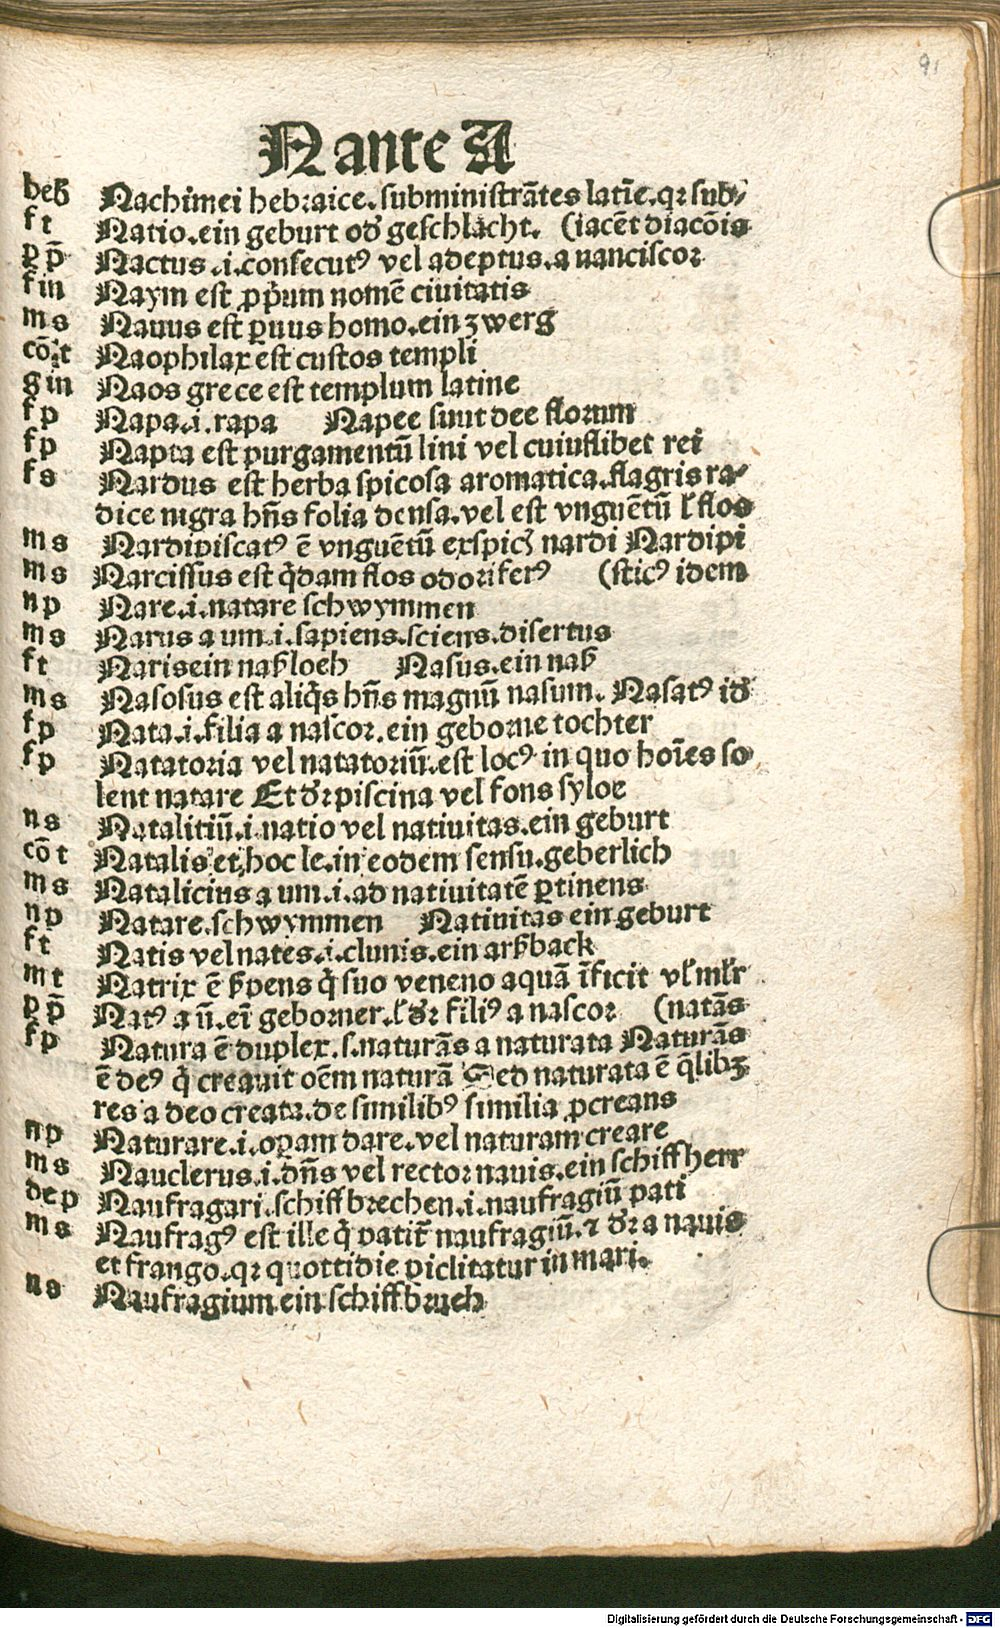 91
N ante A
heb Nachimei hebraice. subministrãtes latĩe. qꝛ sub⸗
f t Natio. ein geburt od' geschlacht. (iacẽt diacõis
ꝑ p̄ Nactus .i. consecutꝰ vel adeptus. a nanciscoꝛ
f in Naym est ꝓpꝛium nomẽ ciuitatis
m s Nauus est ꝑuus homo. ein zwerg
cõ t Naophilax est custos templi
g in Naos grece est templum latine
f p Napa .i. rapa Napee sunt dee florum
f p Napta est purgamentũ lini vel cuiuslibet rei
f s Nardus est herba spicosa aromatica. flagris ra⸗
dice nigra hñs folia densa. vel est vnguẽtũ l' flos
m s Nardipiscatꝰ ẽ vnguẽtũ ex spicꝭ nardi Nardipi
m s Narcissus est q̇dam flos odoriferꝰ (sticꝰ idem
n p Nare .i. natare schwymmen
m s Narus a um .i. sapiens. sciens. disertus
f t Naris ein naßloch Nasus. ein naß
m s Nasosus est aliq̇s hñs magnũ nasum. Nasatꝰ id'
f p Nata .i. filia a nascoꝛ. ein geborne tochter
f p Natatoria vel natatoriũ. est locꝰ in quo hoĩes so
lent natare Et d'ꝛ piscina vel fons syloe
n s Natalitiũ .i. natio vel natiuitas. ein geburt
cõ t Natalis et hoc le. in eodem sensu. geberlich
m s Natalicius a um .i. ad natiuitatẽ ꝑtinens
n p Natare. schwymmen Natiuitas ein geburt
f t Natis vel nates .i. clunis. ein arßback
m t Natrix ẽ ẞpens q̇ suo veneno aquã ĩficit vl' ml'r
ꝑ p̄ Natꝰ a ũ. eĩ geborner. l' d'ꝛ filiꝰ a nascoꝛ (natãs
f p Natura ẽ duplex. s. naturãs a naturata Naturãs
ẽ deꝰ q̇ creauit oẽm naturã Sed naturata ẽ q̃libꝫ
res a deo creata. de similibꝰ similia ꝓcreans
n p Naturare .i. oꝑam dare. vel naturam creare
m s Nauclerus .i. dñs vel rector nauis. ein schiffherr
de p Naufragari. schiffbrechen .i. naufragiũ pati
m s Naufragꝰ est ille q̇ patit̃ naufragiũ. ⁊ d'ꝛ a nauis
et frango. qꝛ quottidie ꝑiclitatur in mari.
n s Naufragium ein schiffbruch
Digitalisierung gefördert durch die Deutsche Forschungsgemeinschaft - DFG